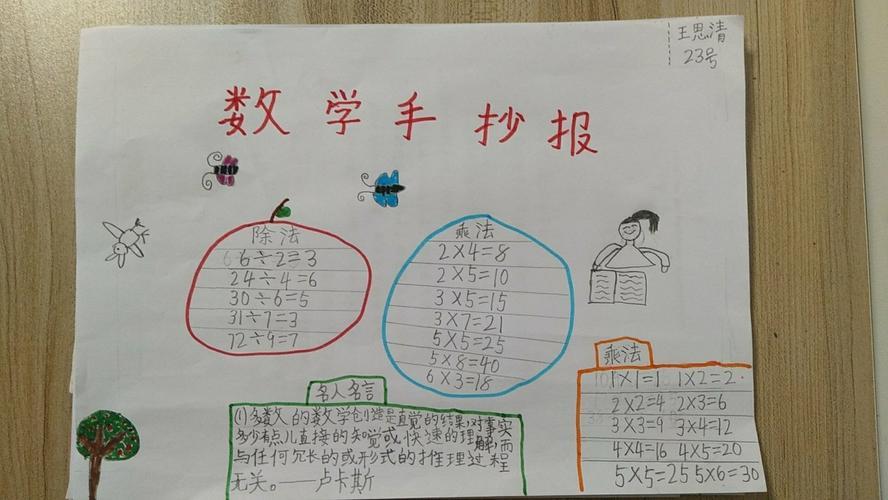 王思清
23号
数学手抄报
除法
6÷2=3
24÷4=6
30÷6=5
31÷7=3
72÷9=7
乘法
2×4=8
2×5=10
3×5=15
3×7=21
5×5=25
5×8=40
6×3=18
名人名言
(1)多数人的数学创造是直觉的结果,对事实
多少有点儿直接的知觉或快速的理解,而
与任何冗长的或形式的推理过程
无关。——卢卡斯
乘法
1×1=1 1×2=2
2×2=4 2×3=6
3×3=9 3×4=12
4×4=16 4×5=20
5×5=25 5×6=30